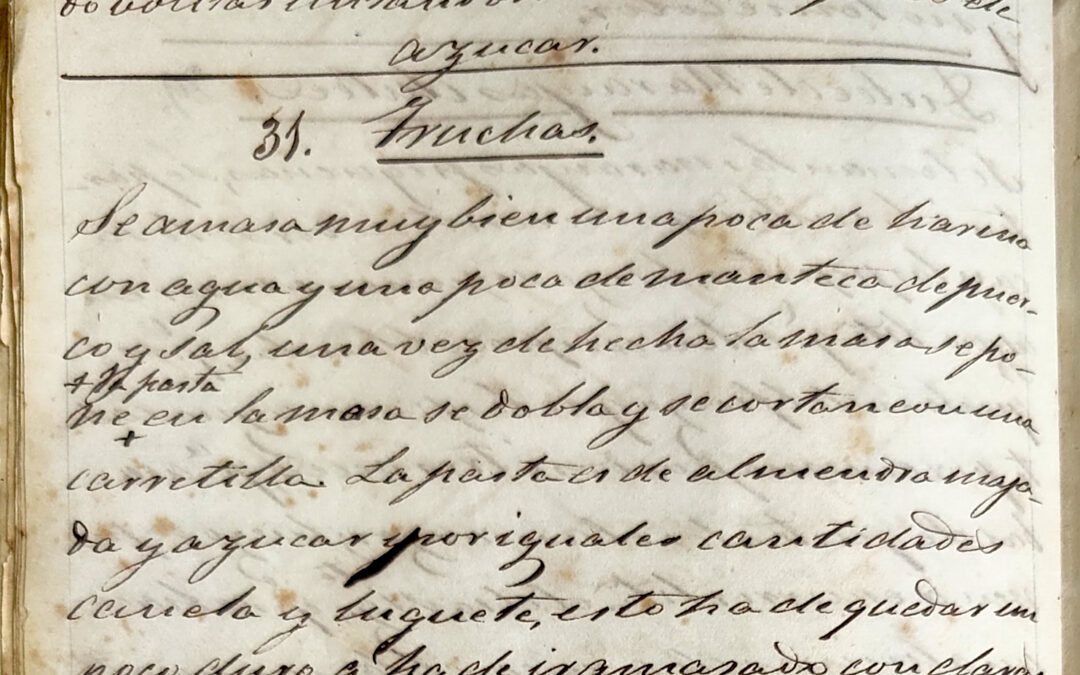 azucar.
31. Truchas.
Se amasa muy bien una poca de harina
con agua y una poca de manteca de puer-
co y sal, una vez de hecha la masa se po-
+ la pasta
ne + en la masa se dobla y se cortan con una
carretilla. La pasta es de almendra maja-
da y azucar por iguales cantidades
canela y luquete, esto ha de quedar un
poco duro y ha de ir amasado con claras